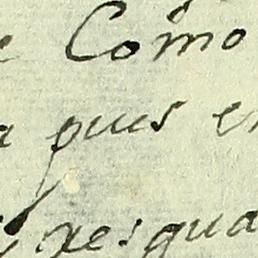 e Como
a pues en
resgua